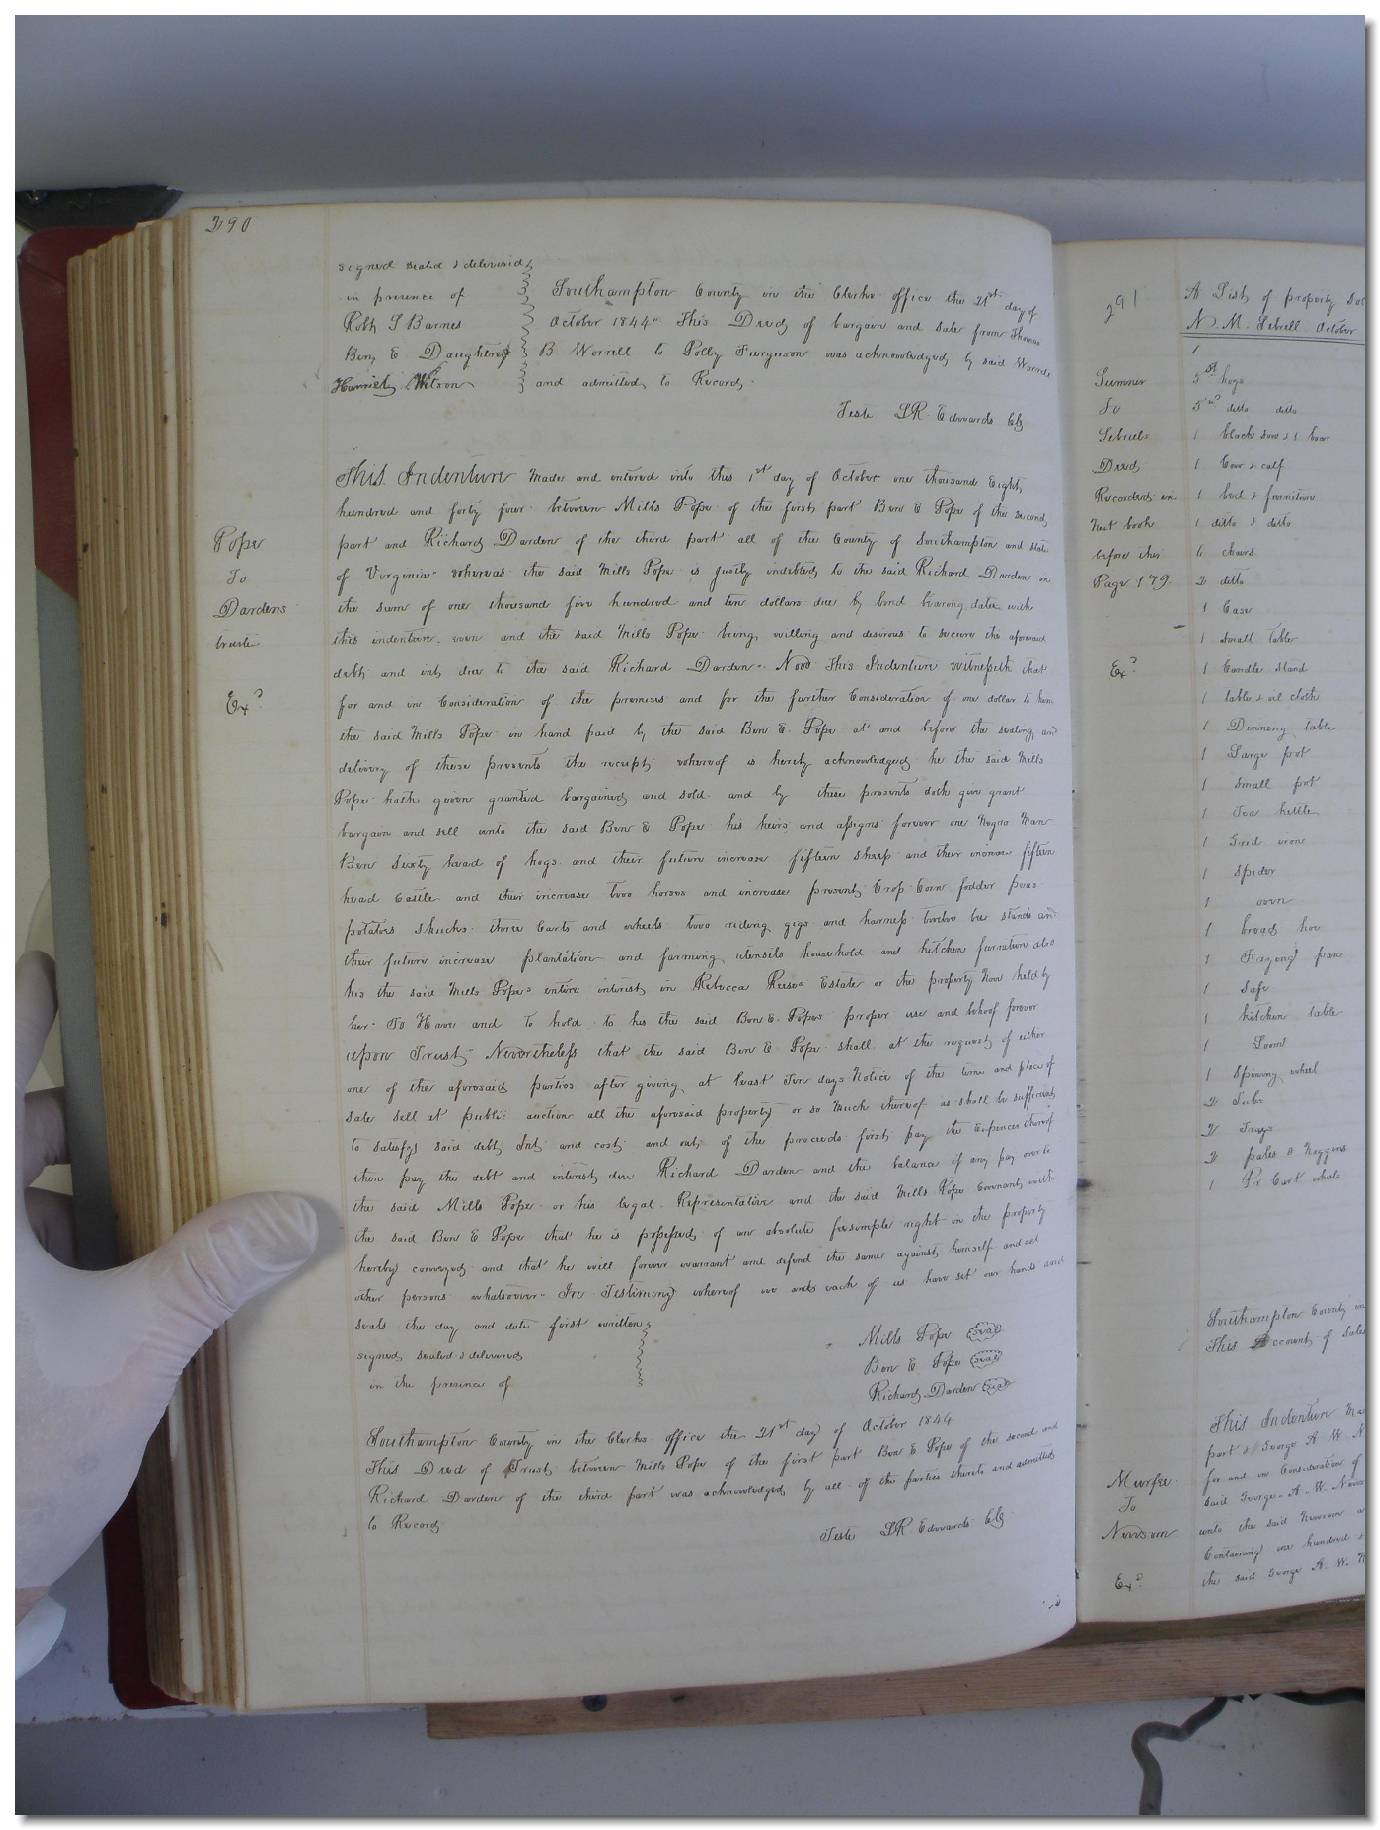 290
signed seald & delivered
in presence of
Robt S Barnes
Benj E Daughtery
Harriet Wilson
Southampton County in the Clerks office the 21st day of
October 1844" This Deed of bargain and sale from Thomas
B. Worrell to Polly Furguson was acknowledged by said Worrell
and admitted to Record.
Teste LR. Edwards Clk
Pope
To
Dardens
trustee
Exd
This Indenture Made and entered into this 1st day of October one thousand Eight
hundred and forty four between Mills Pope of the first part Ben E Pope of the second
part and Richard Darden of the third part all of the County of Southampton and state
of Virginia whereas the said Mills Pope is justly indebted to the said Richard Darden in
the sum of one thousand five hundred and ten dollars due by bond bearing date with
this indenture even and the said Mills Pope being willing and desirous to secure the aforesaid
debt and int due to the said Richard Darden. Now This Indenture witnesseth that
for and in Consideration of the premises and for the further Consideration of one dollar to him
the said Mills Pope in hand paid by the said Ben E. Pope at and before the sealing and
delivery of these presents the receipt whereof is hereby acknowledged he the said Mills
Pope hath given granted bargained and sold and by these presents doth give grant
bargain and sell unto the said Ben E Pope his heirs and assigns forever one Negro Man
Ben Sixty head of hogs and their future increase fifteen sheep and their increase fifteen
head Cattle and their increase two horses and increase present Crop Corn fodder peas
potatoes Shucks three Carts and wheels two riding gigs and harness twelve bee stands and
their future increase plantation and farming utensils household and kitchen furniture also
his the said Mills Popes entire interest in Rebecca Reeses Estate or the property Now held by
her. To Have and To hold to his the said Ben E. Popes proper use and behoof forever
upon Trust Nevertheless that the said Ben E Pope shall at the request of either
one of the aforesaid parties after giving at least Ten days Notice of the time and place of
sale sell at public auction all the aforesaid property or so Much thereof as shall be sufficient
to satisfy said debt Int and cost and out of the proceeds first pay the Expences thereof
then pay the debt and interest due Richard Darden and the balance if any pay over to
the said Mills Pope or his legal Representative and the said Mills Pope Covenants with
the said Ben E Pope that he is possessed of an absolute feesimple right in the property
hereby conveyed and that he will forever warrant and defend the same against himself and all
other persons whatsoever. In Testimony whereof we and each of us have set our hands and
seals the day and date first written
signed sealed & delivered
in the presence of
Mills Pope seal
Ben E Pope seal
Richard Darden seal
Southampton County in the Clerks office the 21st day of October 1844
This Deed of Trust between Mills Pope of the first part Ben E Pope of the second and
Richard Darden of the third part was acknowledged by all of the parties thereto and admitted
to Record
Teste LR. Edwards Clk
291
A List of property
N. M. Sebrell October
Sumner
To
Sebrells
Deed
Recorded in
Next book
before this
Page 179.
Exd
1
5 1st hogs
5 2nd ditto ditto
1 black sow & 1 boar
1 Cow & calf
1 bed & furniture
1 ditto & ditto
6 chairs
2 ditto
1 Case
1 small table
1 Candle stand
1 table & oil cloth
1 Dinning table
1 Large pot
1 Small pot
1 Tea kettle
1 Grid iron
1 Spider
1 oven
1 broad hoe
1 Frying pan
1 Safe
1 kitchen table
1 Loom
1 Spining wheel
2 Tubs
2 Trays
2 pales & Noggins
1 Pr Cart wheels
Southampton County in
This Account of Sales
Murfee
To
Newsom
Exd
This Indenture
part & George A. W.
for and in Consideration of
said George A. W. Newsom
unto the said Newsom
Containing one hundred &
the said George A. W.